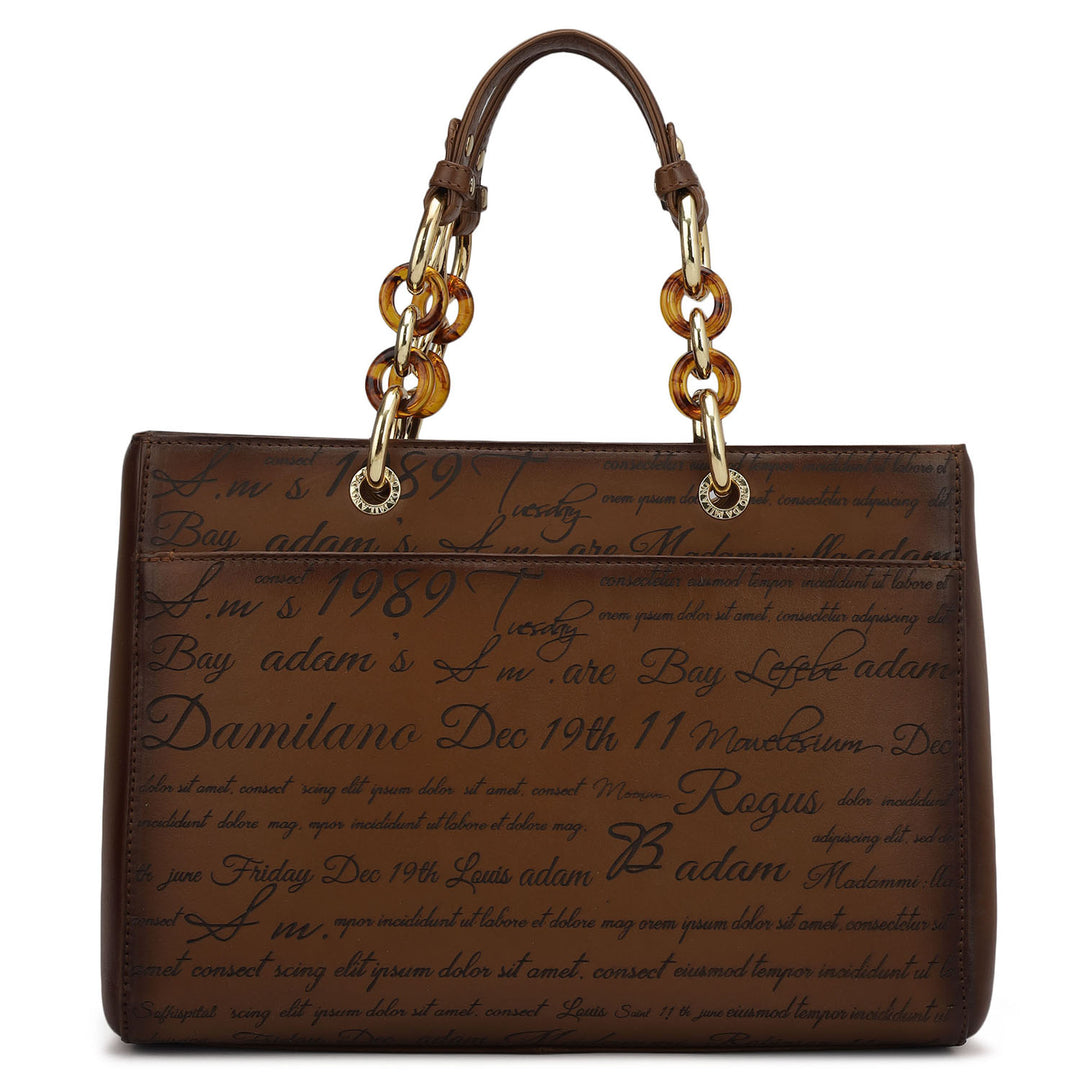 consect consectetur eiusmod tempor incididunt ut labore et
S.m 's 1989 Tuesday orem ipsum dolor sit amet, consectetur adipiscing elit
Bay adam's S.m .are Madammi lla adam
DA MILANO
DA MILANO
consect consectetur eiusmod tempor incididunt ut labore et
S.m 's 1989 Tuesday orem ipsum dolor sit amet, consectetur adipiscing elit
Bay adam's S.m .are Bay Lefebe adam
Damilano Dec 19th 11 Mowelesium Dec
dolor sit amet, consect scing elit ipsum dolor sit amet, consect Rogus dolor incididunt
incididunt dolore mag, mpor incididunt ut labore et dolore mag, adipiscing elit, sed do
th june Friday Dec 19th Louis adam B adam Madammi lla
consect S.m. mpor incididunt ut labore et dolore mag orem ipsum dolor sit amet, consectetur sit
amet consect scing elit ipsum dolor sit amet, consect eiusmod tempor incididunt ut la
Saffhispital scing elit ipsum dolor sit amet, consect Louis Saint 11 th june eiusmod tempor incididunt ut